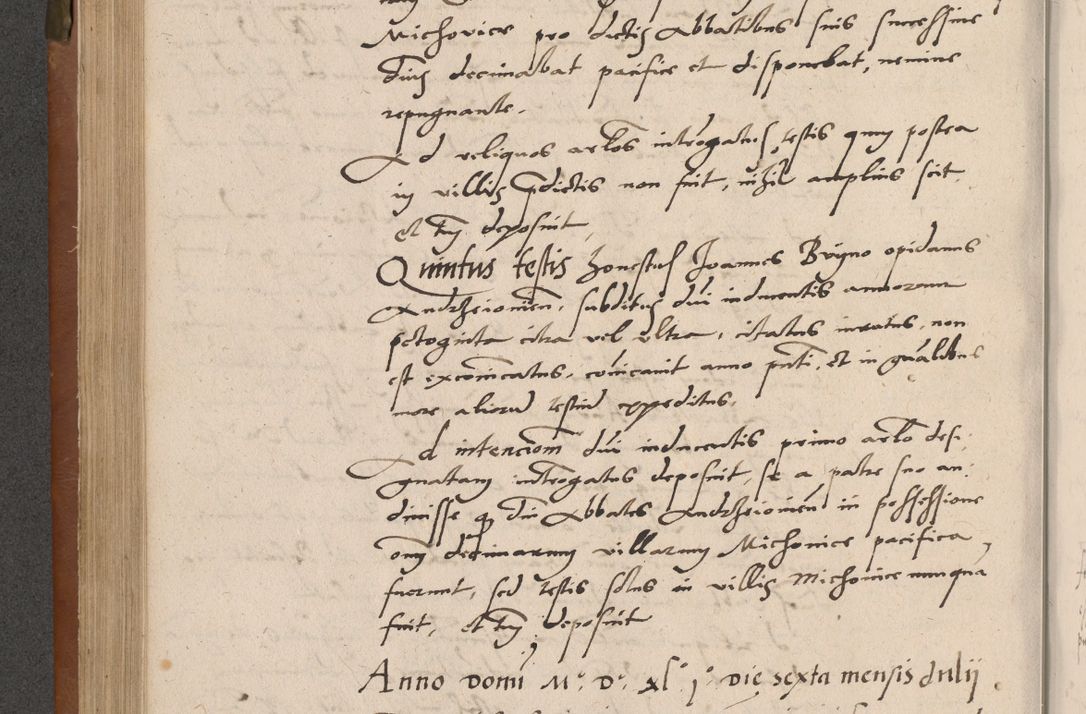 Michovice pro dictis Abbatibus suis successive
duis decimabat pacifice et disponebat, nemine
repugnante.
Ad reliquos arlos introgatus, testis quia postea
in villis pdictis non fuit, nihil amplius scit
et tm deposuit,
Quintus testis honestus Joannes Bryno opidanus
Andrzeiovien, subditus dni inducentis annorum
octoginta citra vel ultra, citatus iuratus, non
est excoicatus, coicavit anno pnti, et in gnalibus
more aliorum testiu expeditus.
Ad intencionem dni inducentis primo arlo desi-
gnatam introgatus deposuit, se a patre suo au-
divisse q dni Abbates Andrzeiovien in possessione
oim decimarum villarum Michovice pacifica
fuerunt, sed testis solus in villis Michovice nunqua
fuit, et tm deposuit
Anno Domi M° D° xl° j° Die sexta mensis Julii